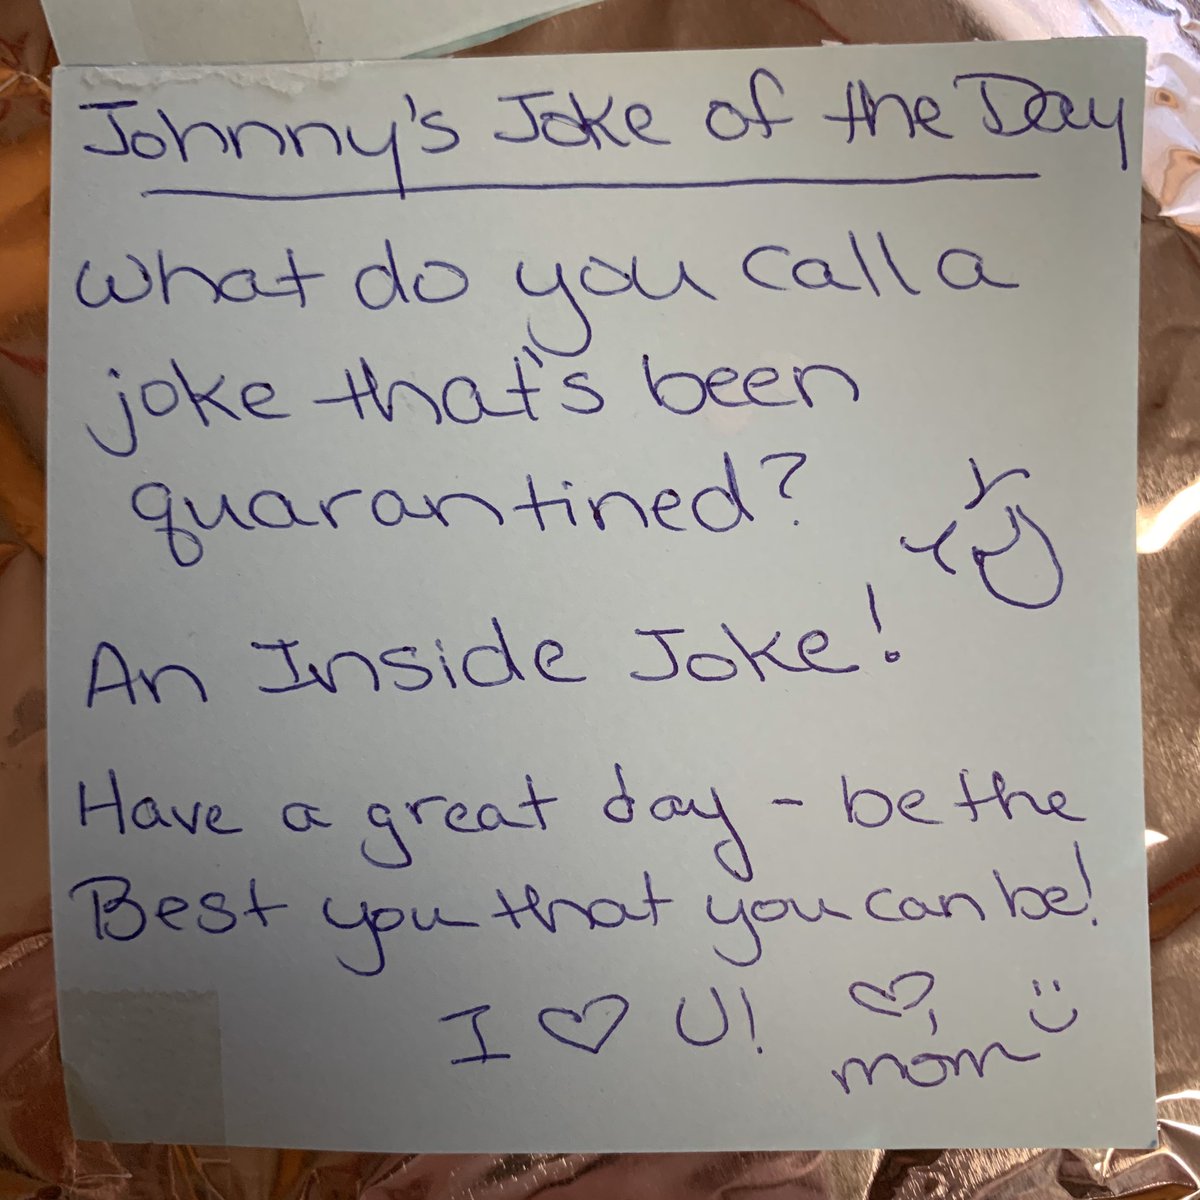 Johnny's Joke of the Day
What do you call a
joke that's been
quarantined?
An Inside Joke!
Have a great day - be the
Best you that you can be!
I ♡ U! ♡,
mom